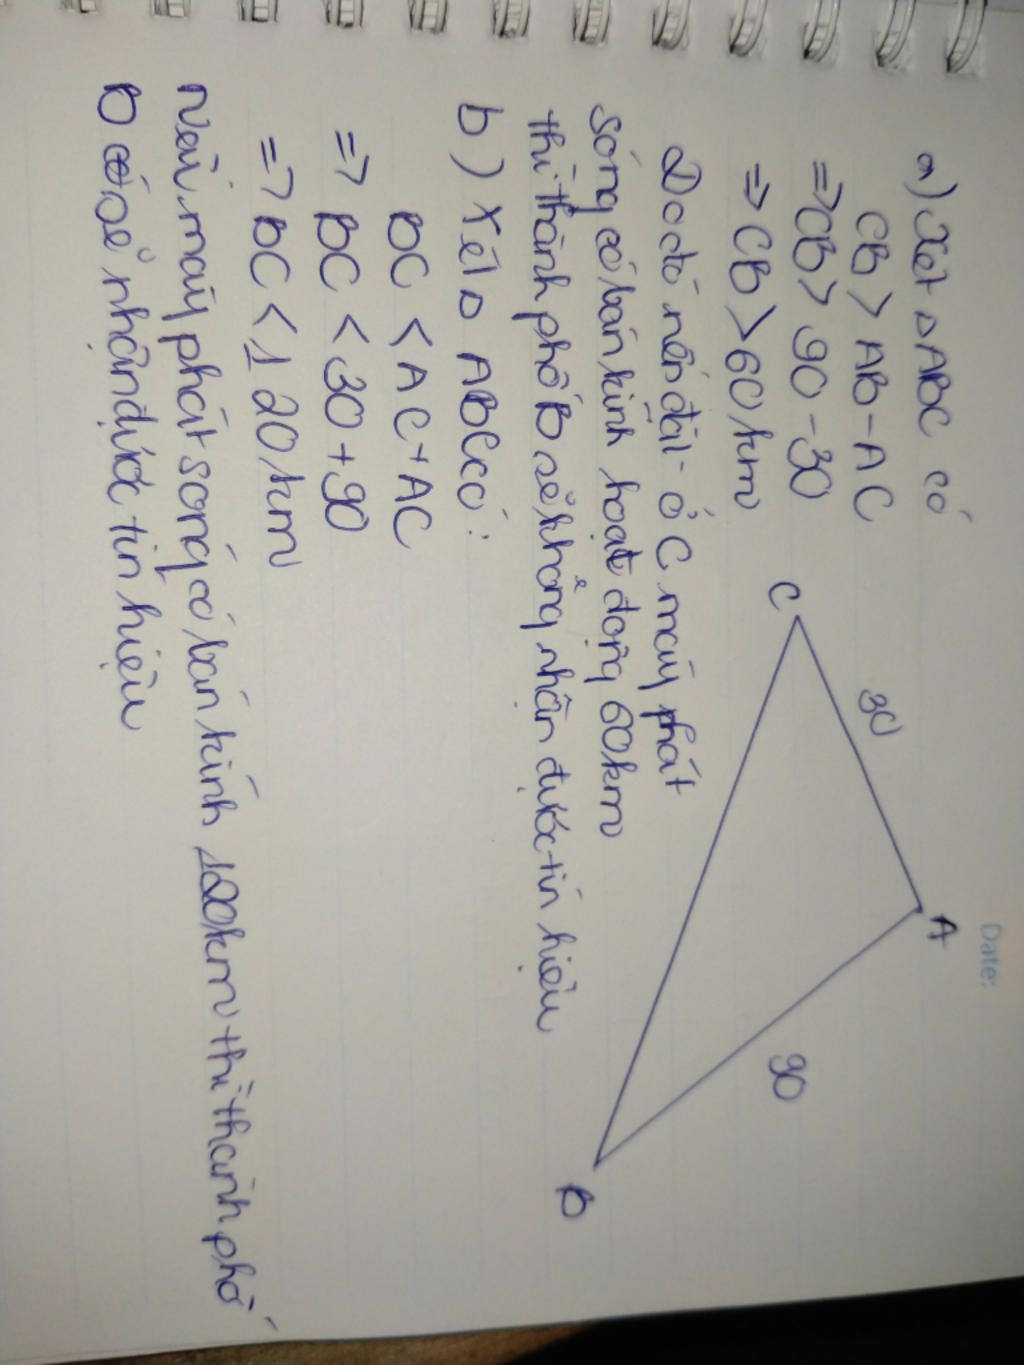 Date:
a) Xét △ABC có
CB > AB - AC
=> CB > 90 - 30
=> CB > 60 km
Do đó nến đặt ở C máy phát
sóng có bán kính hoạt động 60km
thì thành phố B sẽ không nhận được tín hiệu
b) Xét △ ABC có:
BC < AC + AC
=> BC < 30 + 90
=> BC < 120 km
Nếu máy phát sóng có bán kính 120km thì thành phố
B có sẽ nhận được tín hiệu
A
30
90
C
B